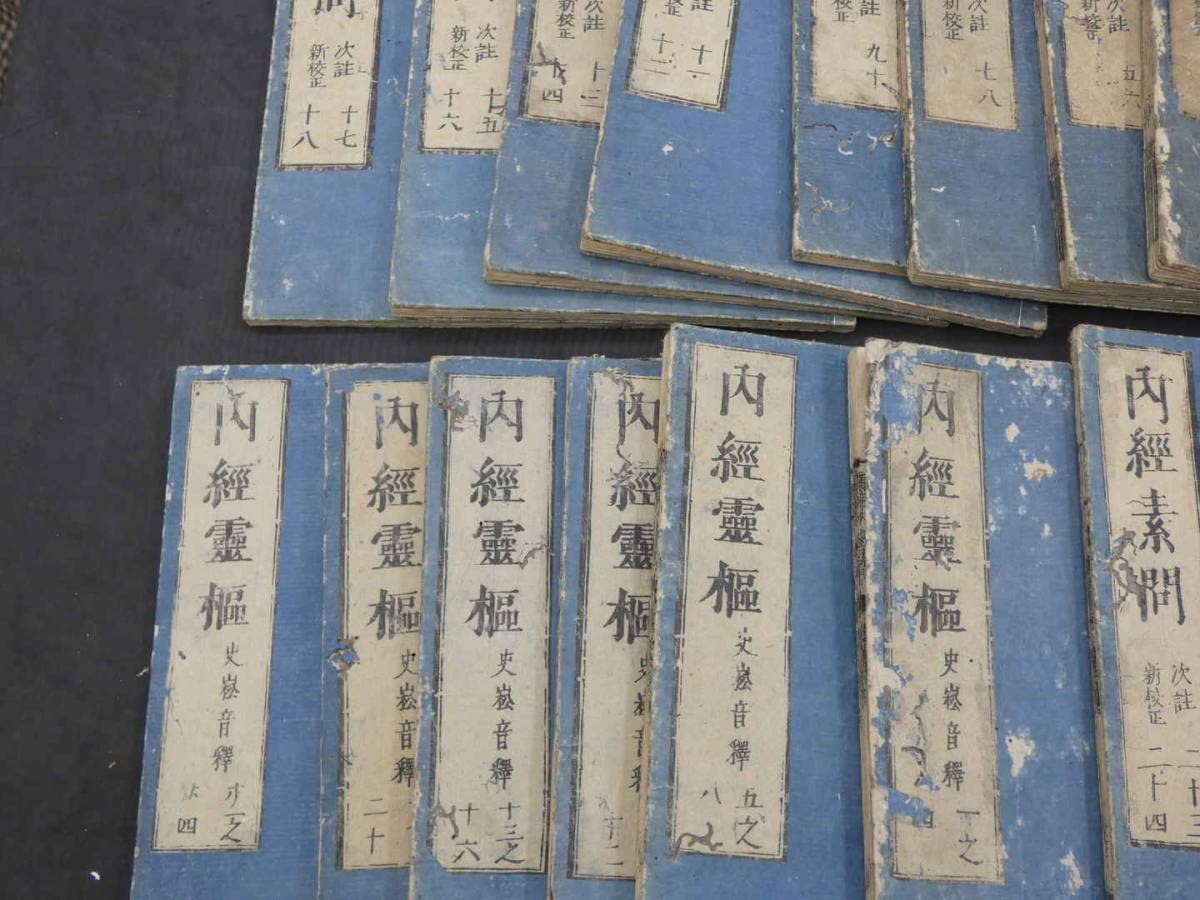 問 次註 新校正 十七 十八
次註 新校正 十五 十六
次註 新校正 十三 十四
十一 十二
次註 新校正 九 十
次註 新校正 七 八
新校正 五 六
內經靈樞 史崧音釋 廿一之 廿四
內經靈樞 史崧音釋 二十
內經靈樞 史崧音釋 十三之 十六
內經靈樞 史崧音釋 十二
內經靈樞 史崧音釋 五之 八
內經靈樞 史崧音釋 一之 四
內經素問 次註 新校正 二十三 二十四